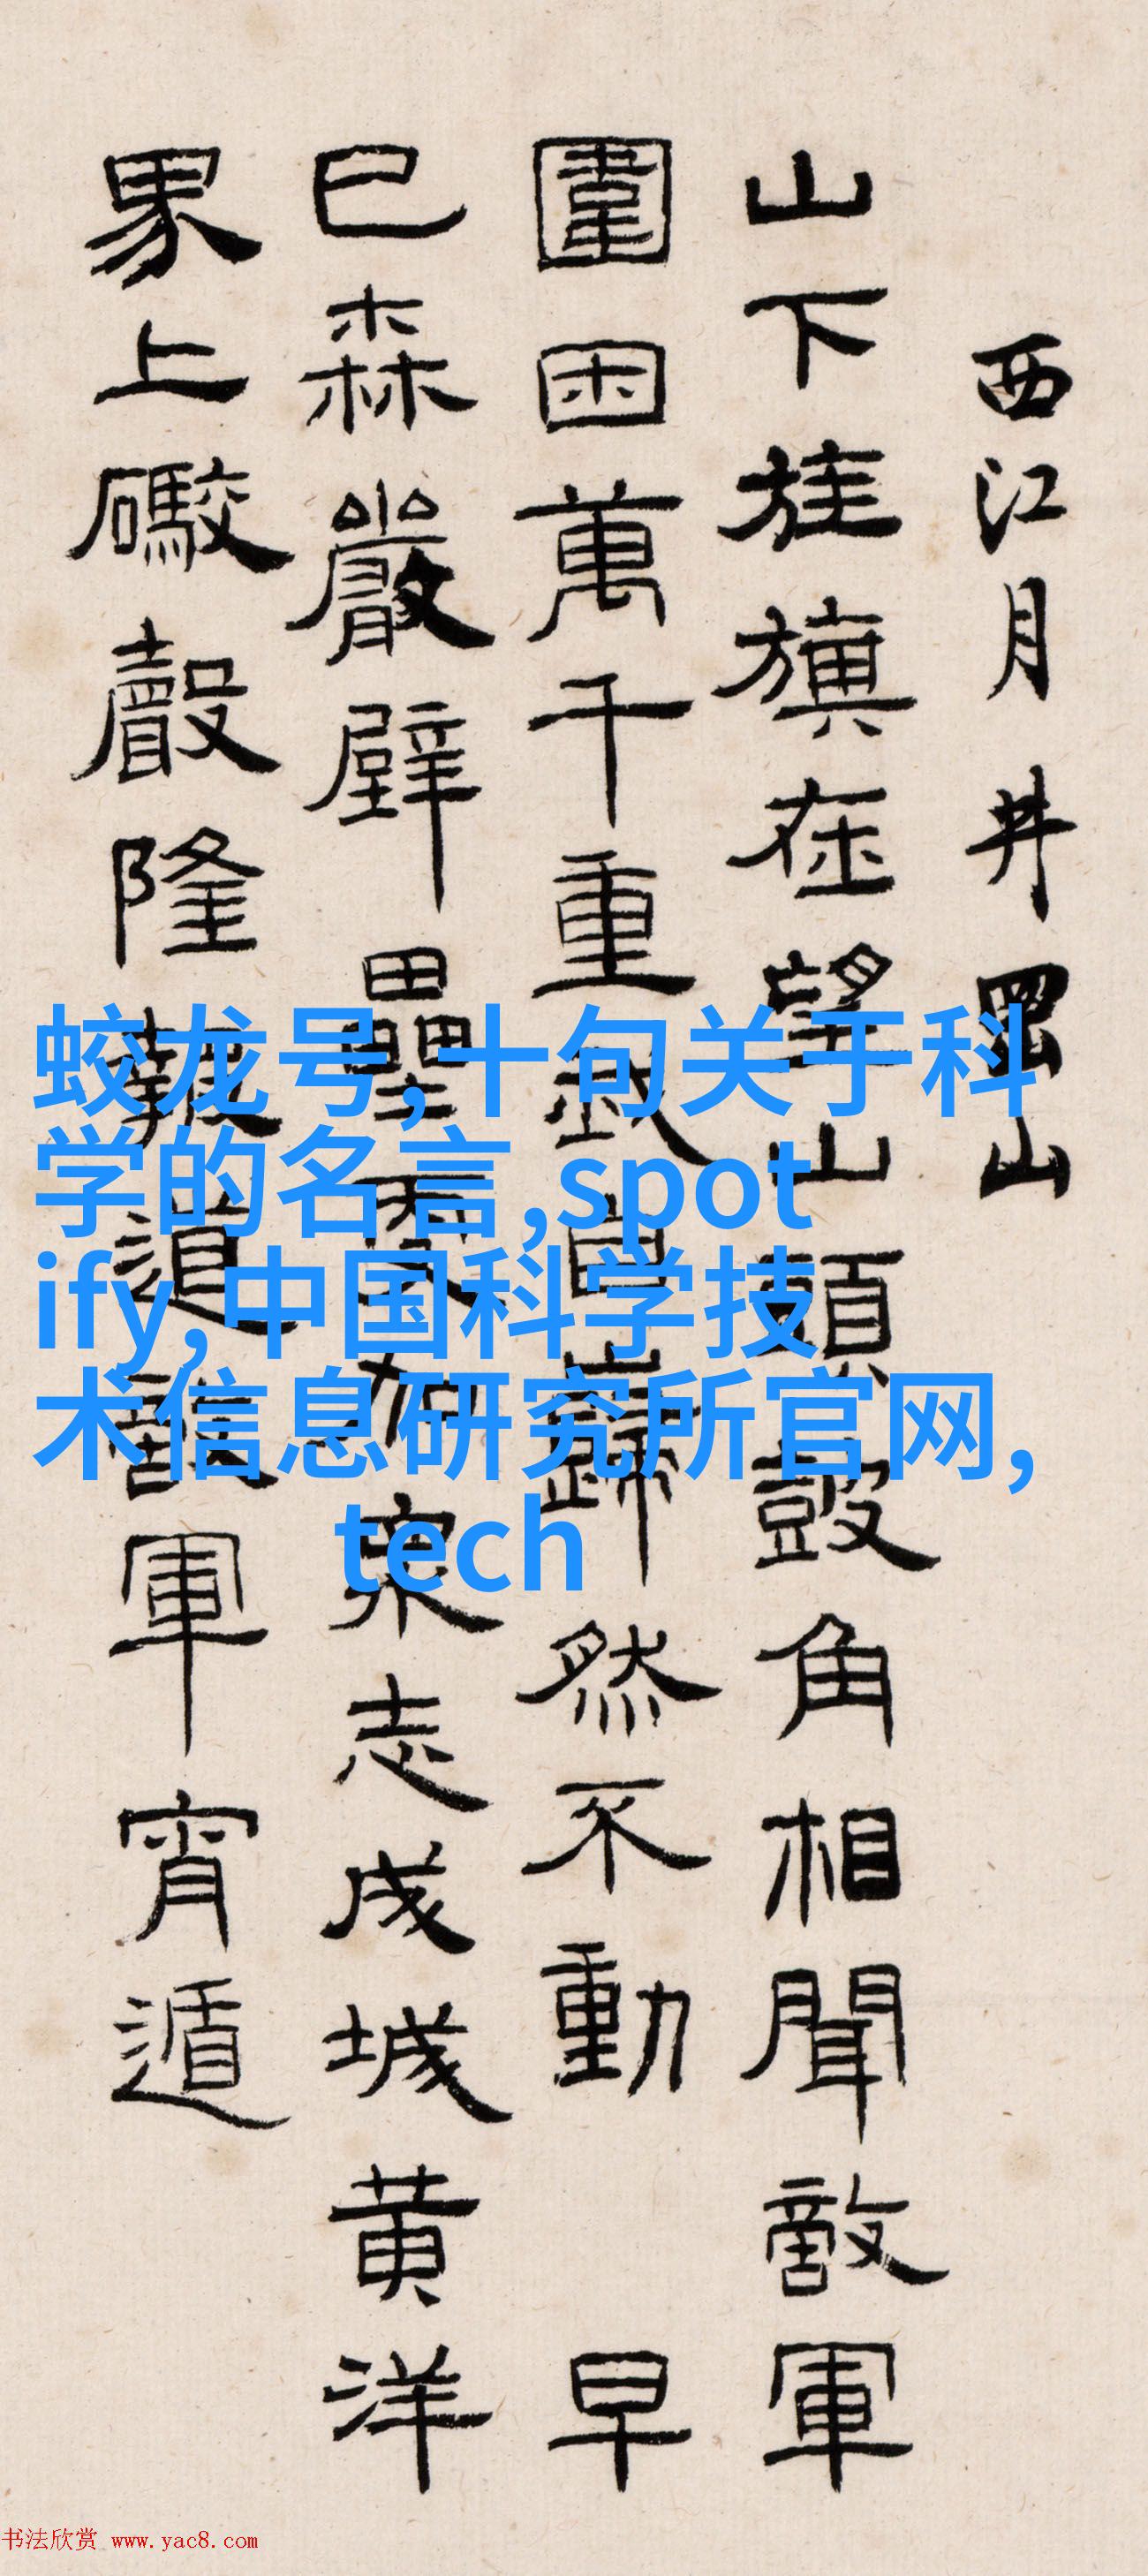 西江月 井岡山
山下旌旗在望山頭鼓角相聞敵軍
圍困萬千重我自巋然不動 早
已森嚴壁壘更加衆志成城黄洋
界上礮聲隆報道敵軍宵遁
蛟龙号,十句关于科
学的名言,spot
ify,中国科学技
术信息研究所官网,
tech
书法欣赏 www.yac8.com